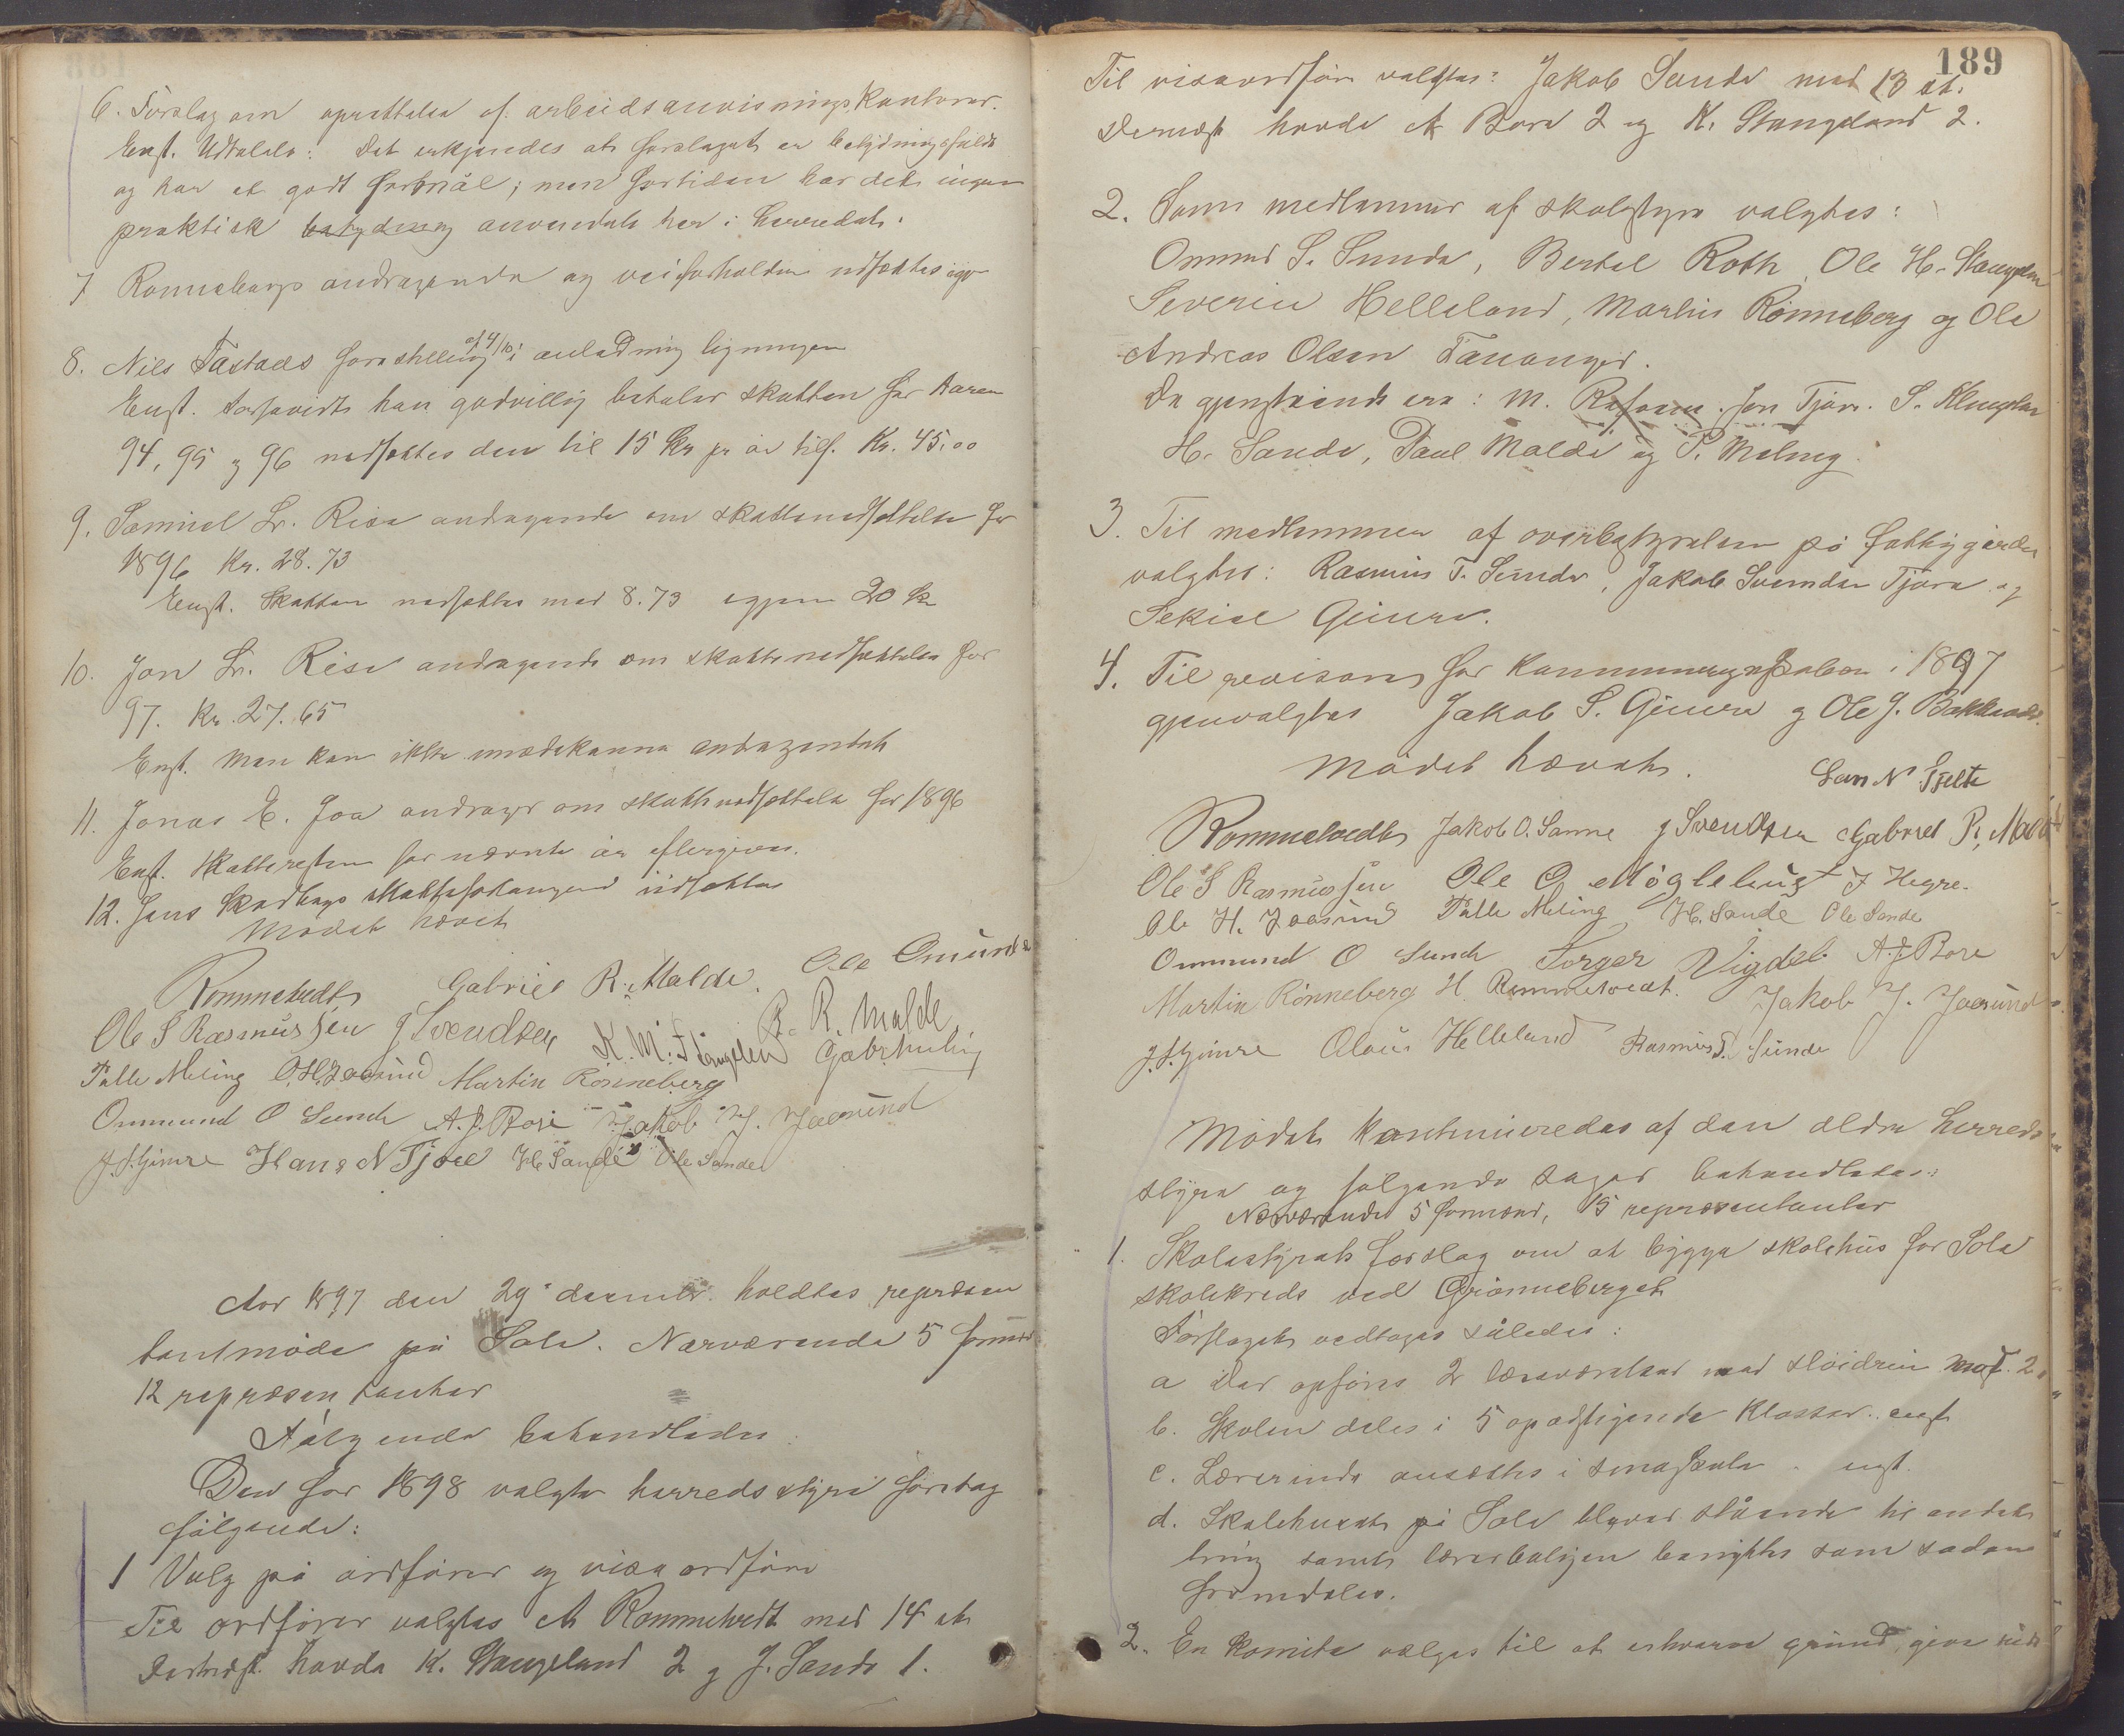 6. Forslag om oprettelse af arbeidsanvisningskontorer.
Enst. Udtalels: Det erkjendes at forslaget er betydningsfuldt
og har et godt formål; men fortiden har det ingen
praktisk betydning anvendels her i herredet.
7 Rønnebergs andragende og veiforholdene udsættes
8. Nils Tastads forestilling af 4/10 i anledning ligningen
Enst. Forsavidt han godvillig betaler skatten for Aaren
94, 95 g 96 nedsættes den til 15 Kr pr år tils. Kr. 45.00
9. Samuel Lr. Risa andragende om skattenedsættelse for
1896 Kr. 28.73
Enst. Skatten nedsættes med 8.73 igjen 20 Kr
10. Jon Lr. Risa andragende om skattenedsættelse for
97. Kr. 27.65
Enst. Man kan ikke imødekomme andragendet
11. Jonas E. Joa andrager om skattenedsættelse for 1896
Enst. Skatteresten for nævnte år eftergives.
12. Jens Skadbergs udsættes
Mødet hævet
Rommetvedt Gabriel R. Malde. Ole Omunds
Ole S Rasmussen J Svendsen K. M. Stangelan R. R. Malde
Tålle Meling O.H.Joasund Martin Rönneberg
Ommund O Sunde A. J. Bore Jakob J. Joasund
J. S. Gimre Hans N Tjore H. Sande Ole Sande
Aar 1897 den 29 decemb. holdtes repræsen
tantmøde på Sola. Nærværende 5 formænd
12 repræsentanter
Følgende behandledes:
Den for 1898 valgte herredsstyre foretog
følgende:
1 Valg på ordfører og viseordfører
Til ordfører valgtes A Rommetvedt med 14 st
Dernæst havde K. Stangeland 2 g J. Sande 1.
189
Til viseordfører valgtes: Jakob Sande med 13 st.
Dernæst havde A Bore 2 og K. Stangeland 2.
2. Som medlemmer af skolestyre valgtes:
Ommund S. Sunde, Bertel Roth, Ole H. Stangelan
Severin Helleland, Martin Rönneberg og Ole
Andreas Olsen Tananger.
De gjenstående ere: M. Jon Tjøre. S.
H. Sande, Paul Malde og T. Meling.
3. Til medlemmer af overbestyrelsen på fattiggården
valgtes: Rasmus T. Sunde, Jakob Svendsen Tjøra og
Sekise Gimre.
4. Til revisorer for kommuneregnskaber i 1897
gjenvalgtes Jakob S. Gimre g Ole J.
Mødet hævet.
Rommetvedt Jakob O. Sanne J Svendsen Gabriel R. Malde
Ole S Rasmussen Ole O Møglebust J Hegre.
Ole H. Joasund Tålle Meling H. Sande Ole Sande
Ommund O Sunde Torger Vigdel A. J. Bore
Martin Rönneberg H. Rommetvedt. Jakob J. Joasund
J. S. Gimre Olaus Helleland Rasmus T. Sunde
Mødet kontinueredes af den ældre herreds
styre og følgende sager behandledes:
Nærværende 5 formænd, 15 repræsentanter
1. Skolestyrets forslag om at bygge skolehus for Sola
skolekreds ved Grønneberget
Forslaget vedtages således:
a Der opføres 2 læseværelser med sløidrum mod. 2
b. Skolen deles i 5 opadstigende klasser. enst
c. Lærerinde ansættes i småskole. enst.
d. Skolehuset på Sola bliver stående til
ning samt lærerboligen benyttes som sadan
fremdeles.
2. En komite vælges til at erhverve grund, give